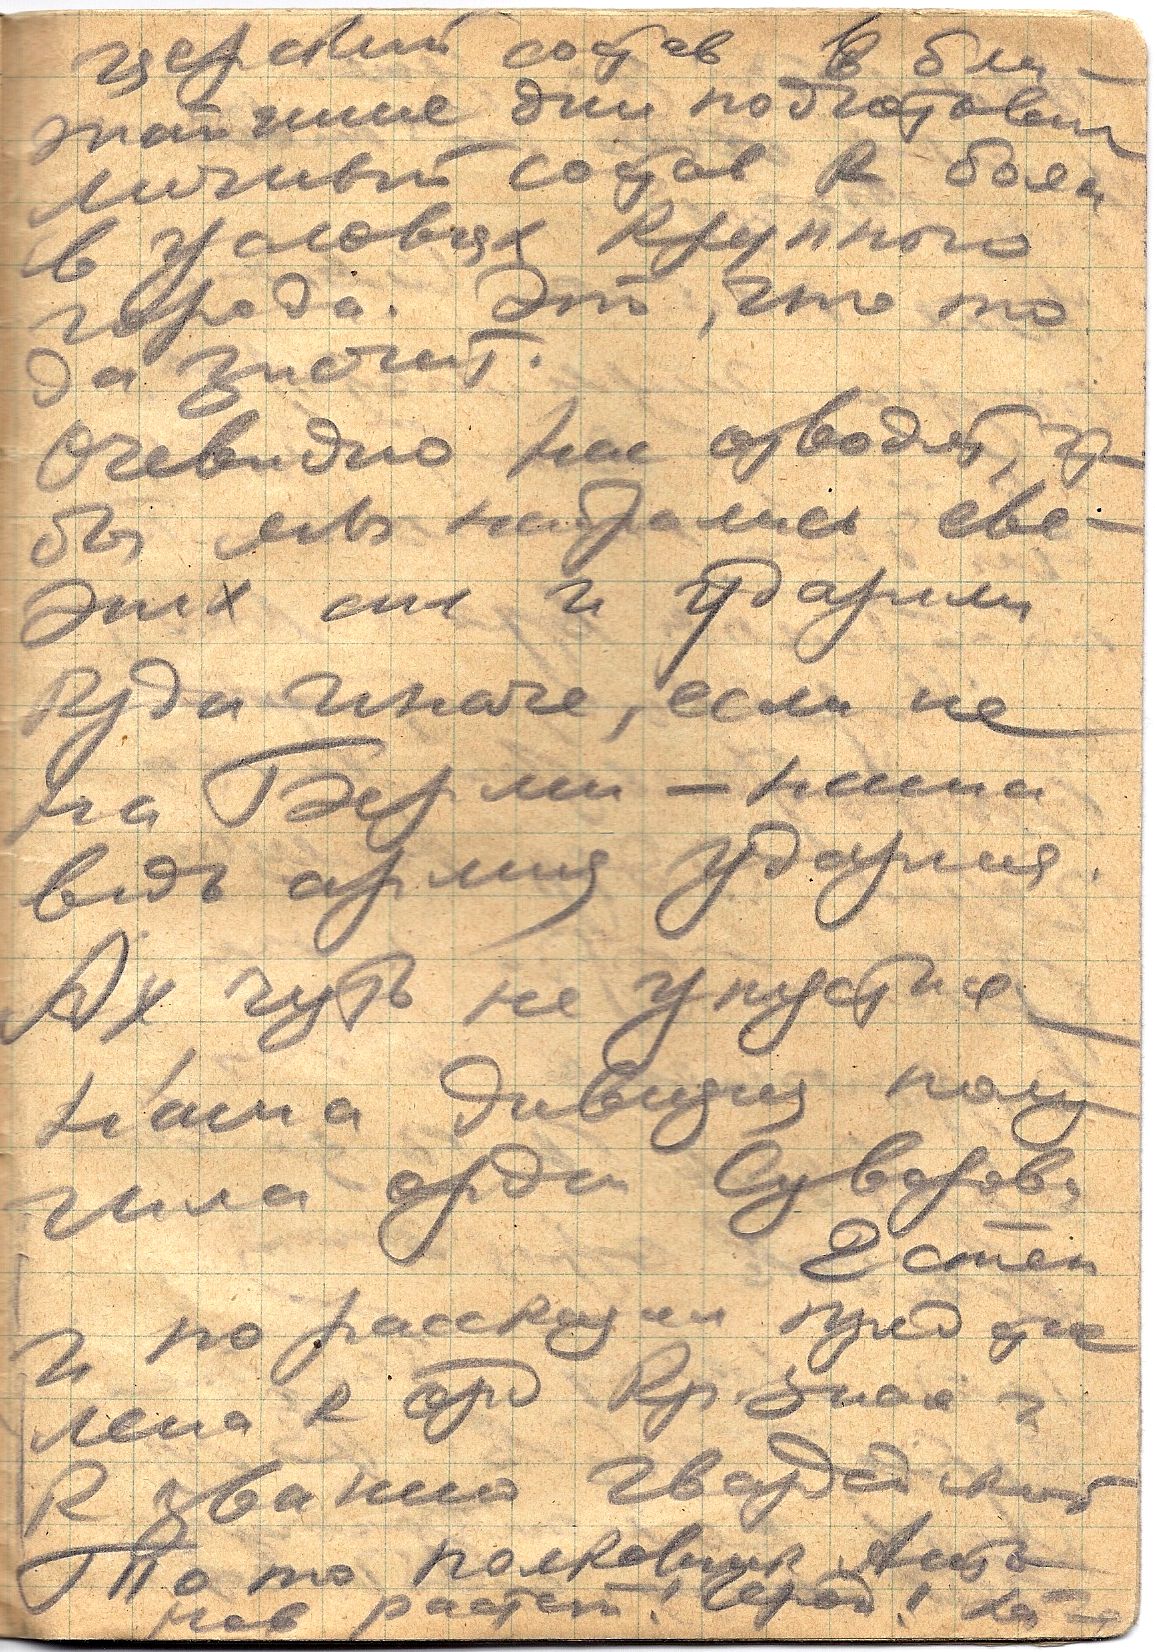 церский состав в бли-
жайшие дни подготовил
личный состав к боям
в условиях крупного
города. Это, что то
да значит.
Очевидно нас отводят, что
бы мы набрались све-
жих сил и ударили
куда иначе, если не
на Берлин – наша
ведь армия ударная.
Ах чуть не упустил
наша дивизия полу
чила орден Суворова
2 степ
и по рассказам представ
лена к орд Кр. Знам и
к званию гвардейской
То то полковник Анто
нов растет!